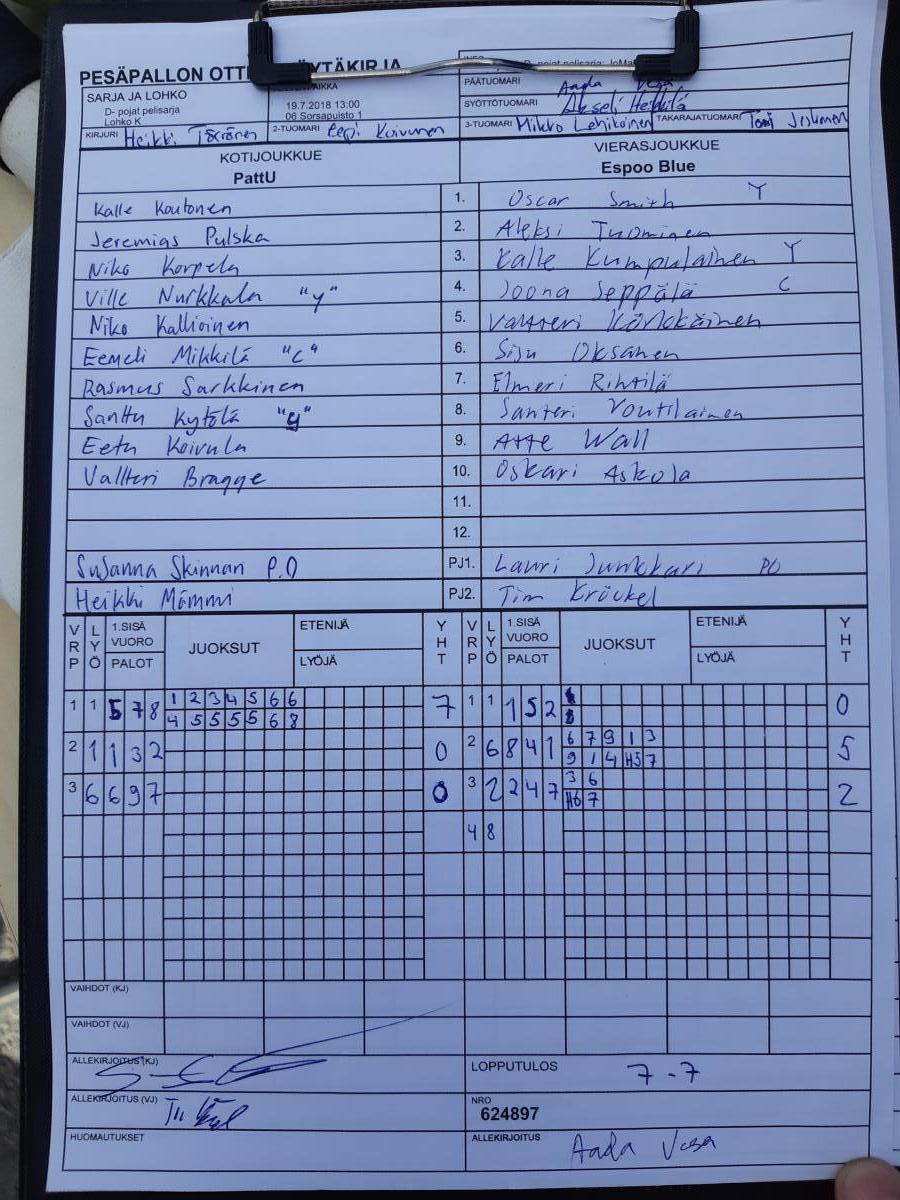 PESÄPALLON OTT
SARJA JA LOHKO
D- pojat pelisarja
Lohko K
19.7.2018 13:00
06 Sorsapuisto 1
PÄÄTUOMARI Aada Vesa
SYÖTTÖTUOMARI Akseli Heikkilä
KIRJURI Heikki Törrönen 2-TUOMARI Eepi Koivunen 3-TUOMARI Mikko Lehikoinen TAKARAJATUOMARI Tomi
KOTIJOUKKUE VIERASJOUKKUE
PattU Espoo Blue
Kalle Koutonen 1. Oscar Smith Y
Jeremias Pulska 2. Aleksi Tuominen
Niko Korpela 3. Kalle Kumpulainen Y
Ville Nurkkala "y" 4. Joona Seppälä C
Niko Kallioinen 5. Valtteri Kärkkäinen
Eemeli Mikkilä "C" 6. Sisu Oksanen
Rasmus Sarkkinen 7. Elmeri Rihtilä
Santtu Kytölä "y" 8. Santeri Voutilainen
Eetu Koivula 9. Atte Wall
Valtteri Bragge 10. Oskari Askola
11.
12.
Susanna Skinnari P.O PJ1. Lauri Junkkari PO
Heikki Mämmi PJ2. Tim Kröckel
VRP LYÖ 1.SISÄ VUORO PALOT JUOKSUT ETENIJÄ LYÖJÄ YHT VRP LYÖ 1.SISÄ VUORO PALOT JUOKSUT ETENIJÄ LYÖJÄ YHT
1 1 5 7 8 1 2 3 4 5 6 6 7 1 1 1 5 2 0
4 5 5 5 5 6 8
2 1 1 3 2 0 2 6 8 4 1 6 7 9 1 3 5
9 1 4 H5 7
3 6 6 9 7 0 3 2 2 4 7 3 6 2
H6 7
4 8
VAIHDOT (KJ)
VAIHDOT (VJ)
ALLEKIRJOITUS (KJ) LOPPUTULOS 7-7
ALLEKIRJOITUS (VJ) NRO
624897
HUOMAUTUKSET ALLEKIRJOITUS Aada Vesa